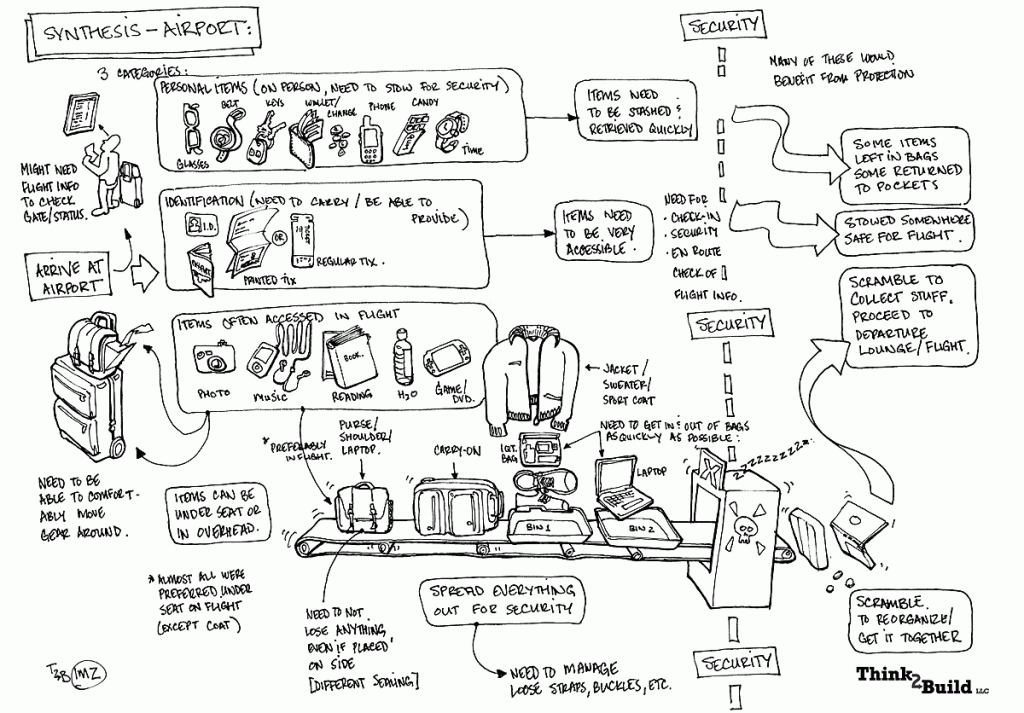 SYNTHESIS - AIRPORT:
3 CATEGORIES:
PERSONAL ITEMS (ON PERSON, NEED TO STOW FOR SECURITY)
GLASSES
BELT
KEYS
WALLET/
CHANGE
PHONE
CANDY
TIME
ITEMS NEED
TO BE STASHED &
RETRIEVED QUICKLY
SECURITY
MANY OF THESE WOULD
BENEFIT FROM PROTECTION
SOME ITEMS
LEFT IN BAGS
SOME RETURNED
TO POCKETS
MIGHT NEED
FLIGHT INFO
TO CHECK
GATE/STATUS.
IDENTIFICATION (NEED TO CARRY / BE ABLE TO
PROVIDE)
I.D.
OR
PRINTED TIX
REGULAR TIX.
ITEMS NEED
TO BE VERY
ACCESSIBLE.
NEED FOR
· CHECK-IN
· SECURITY
· EN ROUTE
CHECK OF
FLIGHT INFO.
STOWED SOMEWHERE
SAFE FOR FLIGHT.
ARRIVE AT
AIRPORT
ITEMS OFTEN ACCESSED IN FLIGHT
PHOTO
MUSIC
BOOK.
READING
H2O
GAME/
DVD.
JACKET/
SWEATER/
SPORT COAT
SECURITY
SCRAMBLE TO
COLLECT STUFF.
PROCEED TO
DEPARTURE
LOUNGE/FLIGHT.
* PREFERABLY
IN FLIGHT.
PURSE/
SHOULDER/
LAPTOP.
CARRY-ON
1QT.
BAG
NEED TO GET IN & OUT OF BAGS
AS QUICKLY AS POSSIBLE:
LAPTOP
X
ZZZZZZZZZZ
BIN 1
BIN 2
NEED TO BE
ABLE TO COMFORT-
ABLY MOVE
GEAR AROUND.
ITEMS CAN BE
UNDER SEAT OR
IN OVERHEAD.
* ALMOST ALL WERE
PREFERRED UNDER
SEAT ON FLIGHT
(EXCEPT COAT)
NEED TO NOT
LOSE ANYTHING
EVEN IF PLACED
ON SIDE
[DIFFERENT SEALING]
SPREAD EVERYTHING
OUT FOR SECURITY
NEED TO MANAGE
LOOSE STRAPS, BUCKLES, ETC.
SCRAMBLE
TO REORGANIZE/
GET IT TOGETHER
SECURITY
T2B IMZ
Think2Build LLC